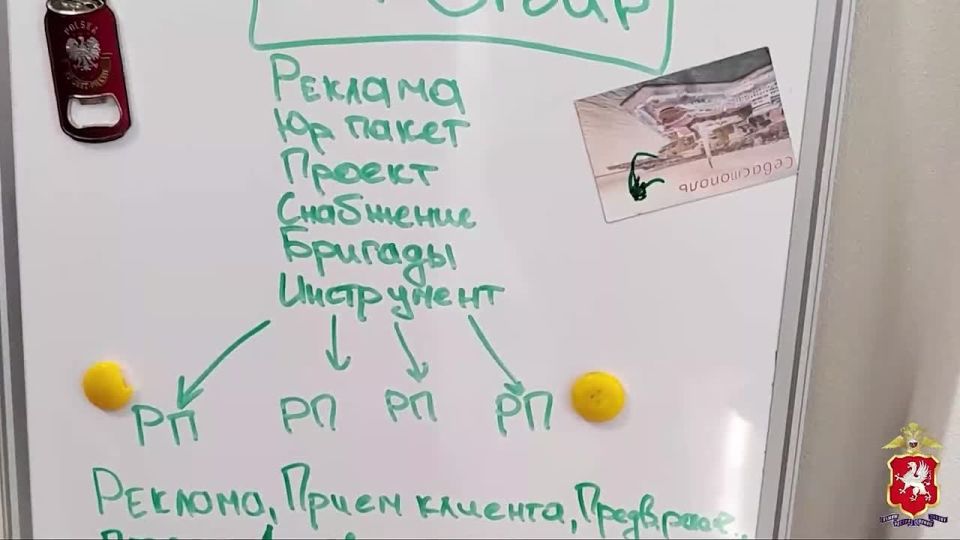 Group
Реклама
Юр пакет
Проект
Снабжение
Бригады
Инструмент
РП РП РП РП
Реклама, Прием клиента,
POLSKA
Севастополь